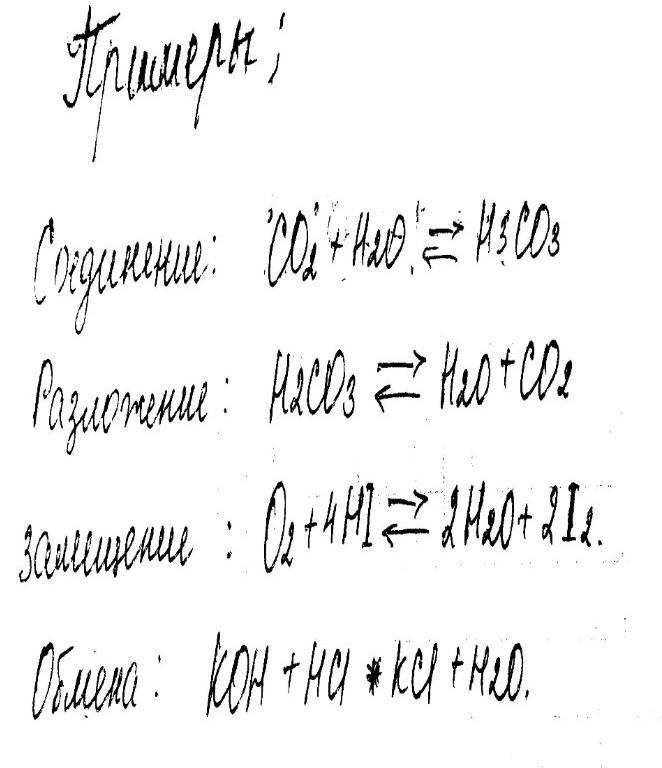 Примеры;
Соединение: CO2 + H2O ⇄ H3CO3
Разложение: H2CO3 ⇄ H2O + CO2
Замещение: O2 + 4HI ⇄ 2H2O + 2I2.
Обмена: KOH + HCl * KCl + H2O.